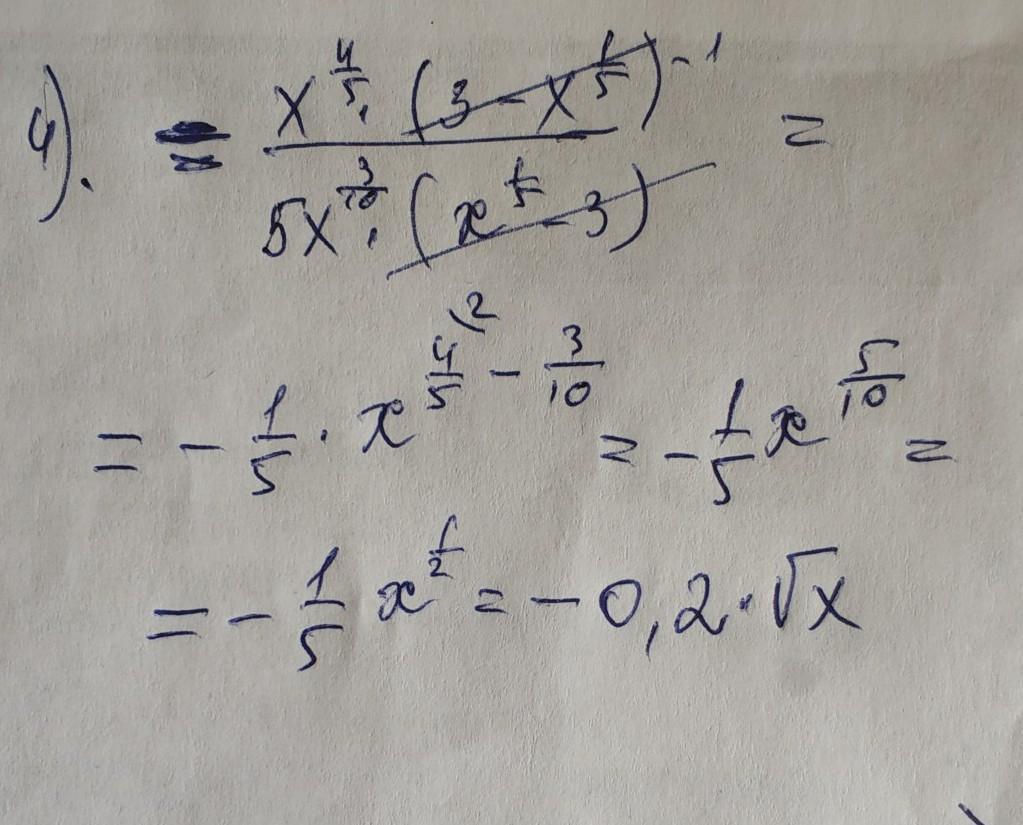 4). = x^{4/5} · (3 - x^{1/5})^{-1} / 5x^{3/10} · (x^{1/5} - 3) =
= - 1/5 · x^{4/5 \2 - 3/10} = - 1/5 x^{5/10} =
= - 1/5 x^{1/2} = - 0,2 · √x